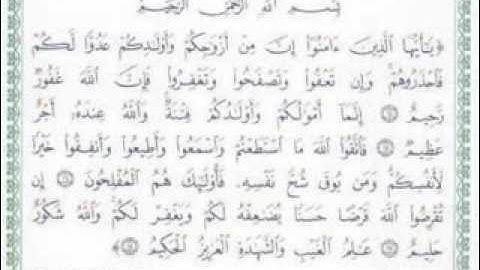 بِسْمِ اللَّهِ الرَّحْمَٰنِ الرَّحِيمِ
﴿يَٰٓأَيُّهَا ٱلَّذِينَ ءَامَنُوٓا۟ إِنَّ مِنْ أَزْوَٰجِكُمْ وَأَوْلَٰدِكُمْ عَدُوًّا لَّكُمْ
فَٱحْذَرُوهُمْ وَإِن تَعْفُوا۟ وَتَصْفَحُوا۟ وَتَغْفِرُوا۟ فَإِنَّ ٱللَّهَ غَفُورٌ
رَّحِيمٌ ۝ إِنَّمَآ أَمْوَٰلُكُمْ وَأَوْلَٰدُكُمْ فِتْنَةٌ وَٱللَّهُ عِندَهُۥٓ أَجْرٌ
عَظِيمٌ ۝ فَٱتَّقُوا۟ ٱللَّهَ مَا ٱسْتَطَعْتُمْ وَٱسْمَعُوا۟ وَأَطِيعُوا۟ وَأَنفِقُوا۟ خَيْرًا
لِّأَنفُسِكُمْ وَمَن يُوقَ شُحَّ نَفْسِهِۦ فَأُو۟لَٰٓئِكَ هُمُ ٱلْمُفْلِحُونَ ۝ إِن
تُقْرِضُوا۟ ٱللَّهَ قَرْضًا حَسَنًا يُضَٰعِفْهُ لَكُمْ وَيَغْفِرْ لَكُمْ وَٱللَّهُ شَكُورٌ
حَلِيمٌ ۝ عَٰلِمُ ٱلْغَيْبِ وَٱلشَّهَٰدَةِ ٱلْعَزِيزُ ٱلْحَكِيمُ ۝﴾